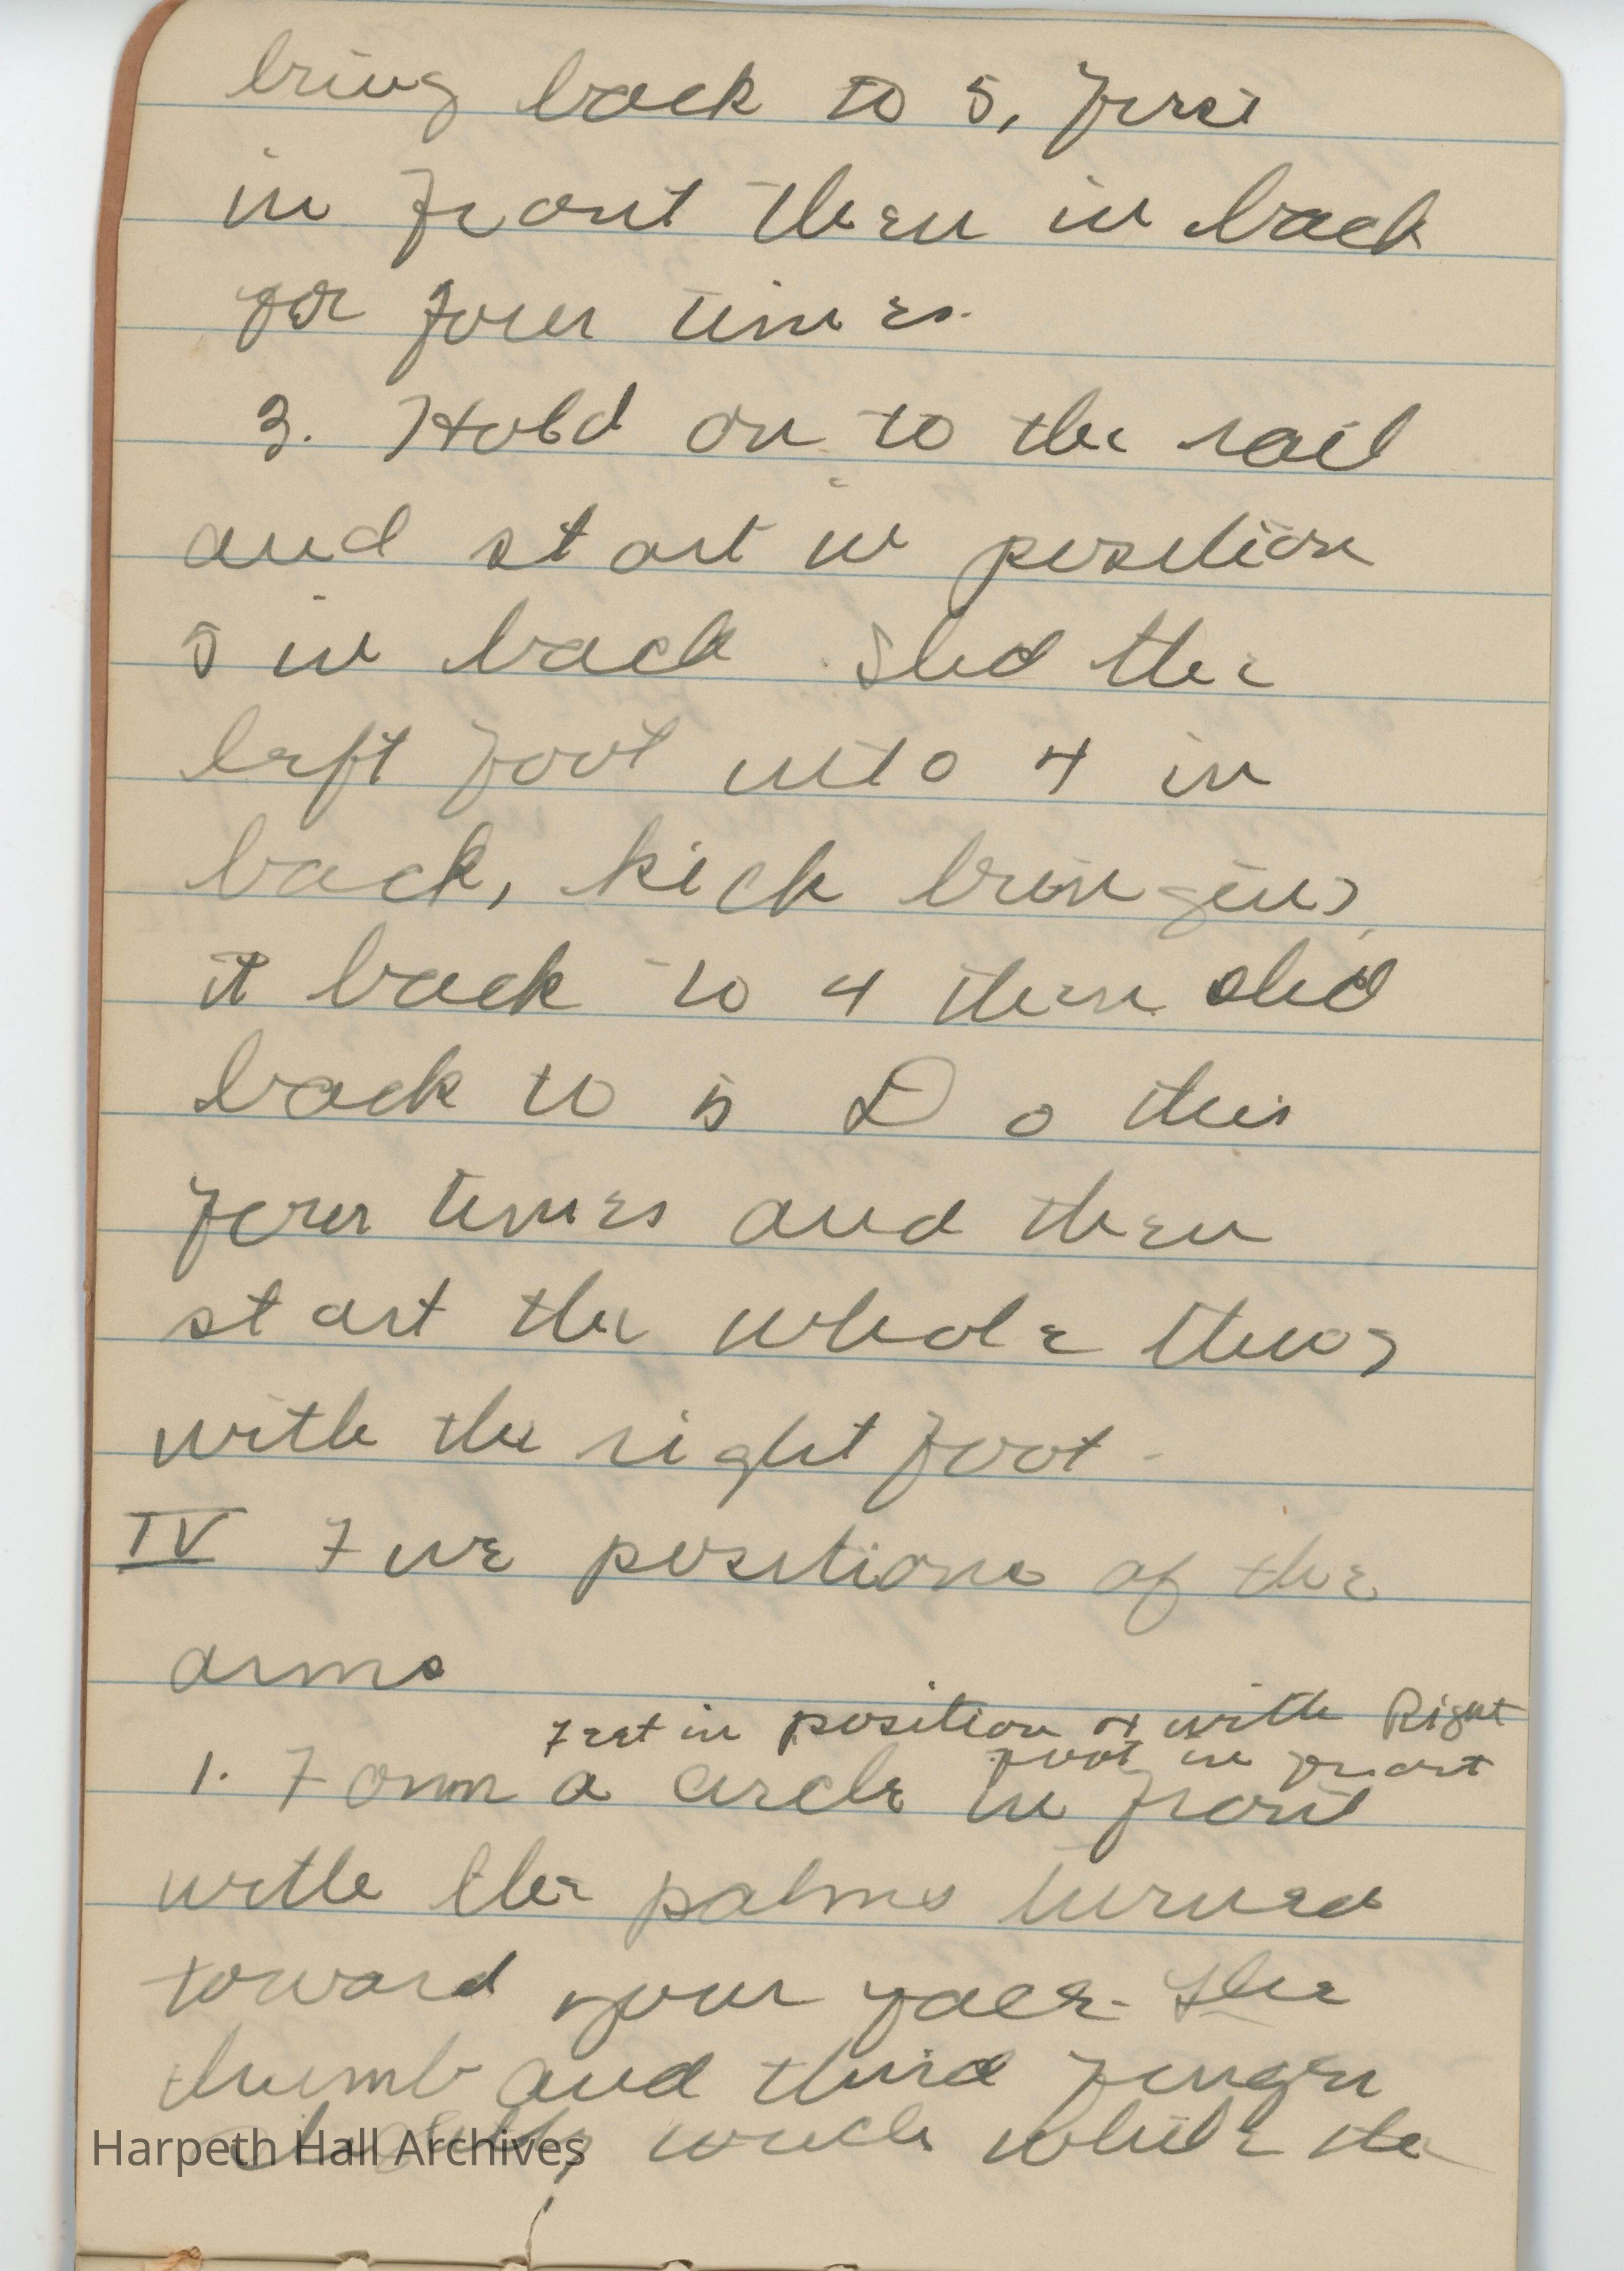 bring back to 5, first
in front then in back
for four times.
3. Hold on to the rail
and start in position
5 in back slid the
left foot into 4 in
back, kick bringing
it back to 4 then slid
back to 5 Do this
four times and then
start the whole thing
with the right foot.
IV Five positions of the
arms
Feet in position 4 with Right
foot in front
1. Form a circle in front
with the palms turned
toward your face. The
thumb and third finger
slightly touch while the
Harpeth Hall Archives